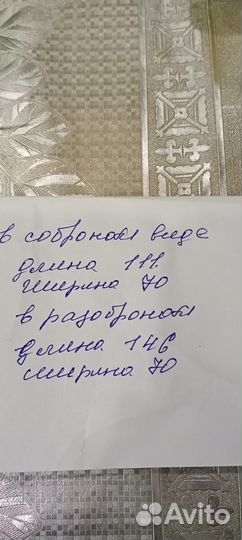 в собронам виде
длина 111.
ширина 70
в разобронам
длина 146
ширина 70
Avito